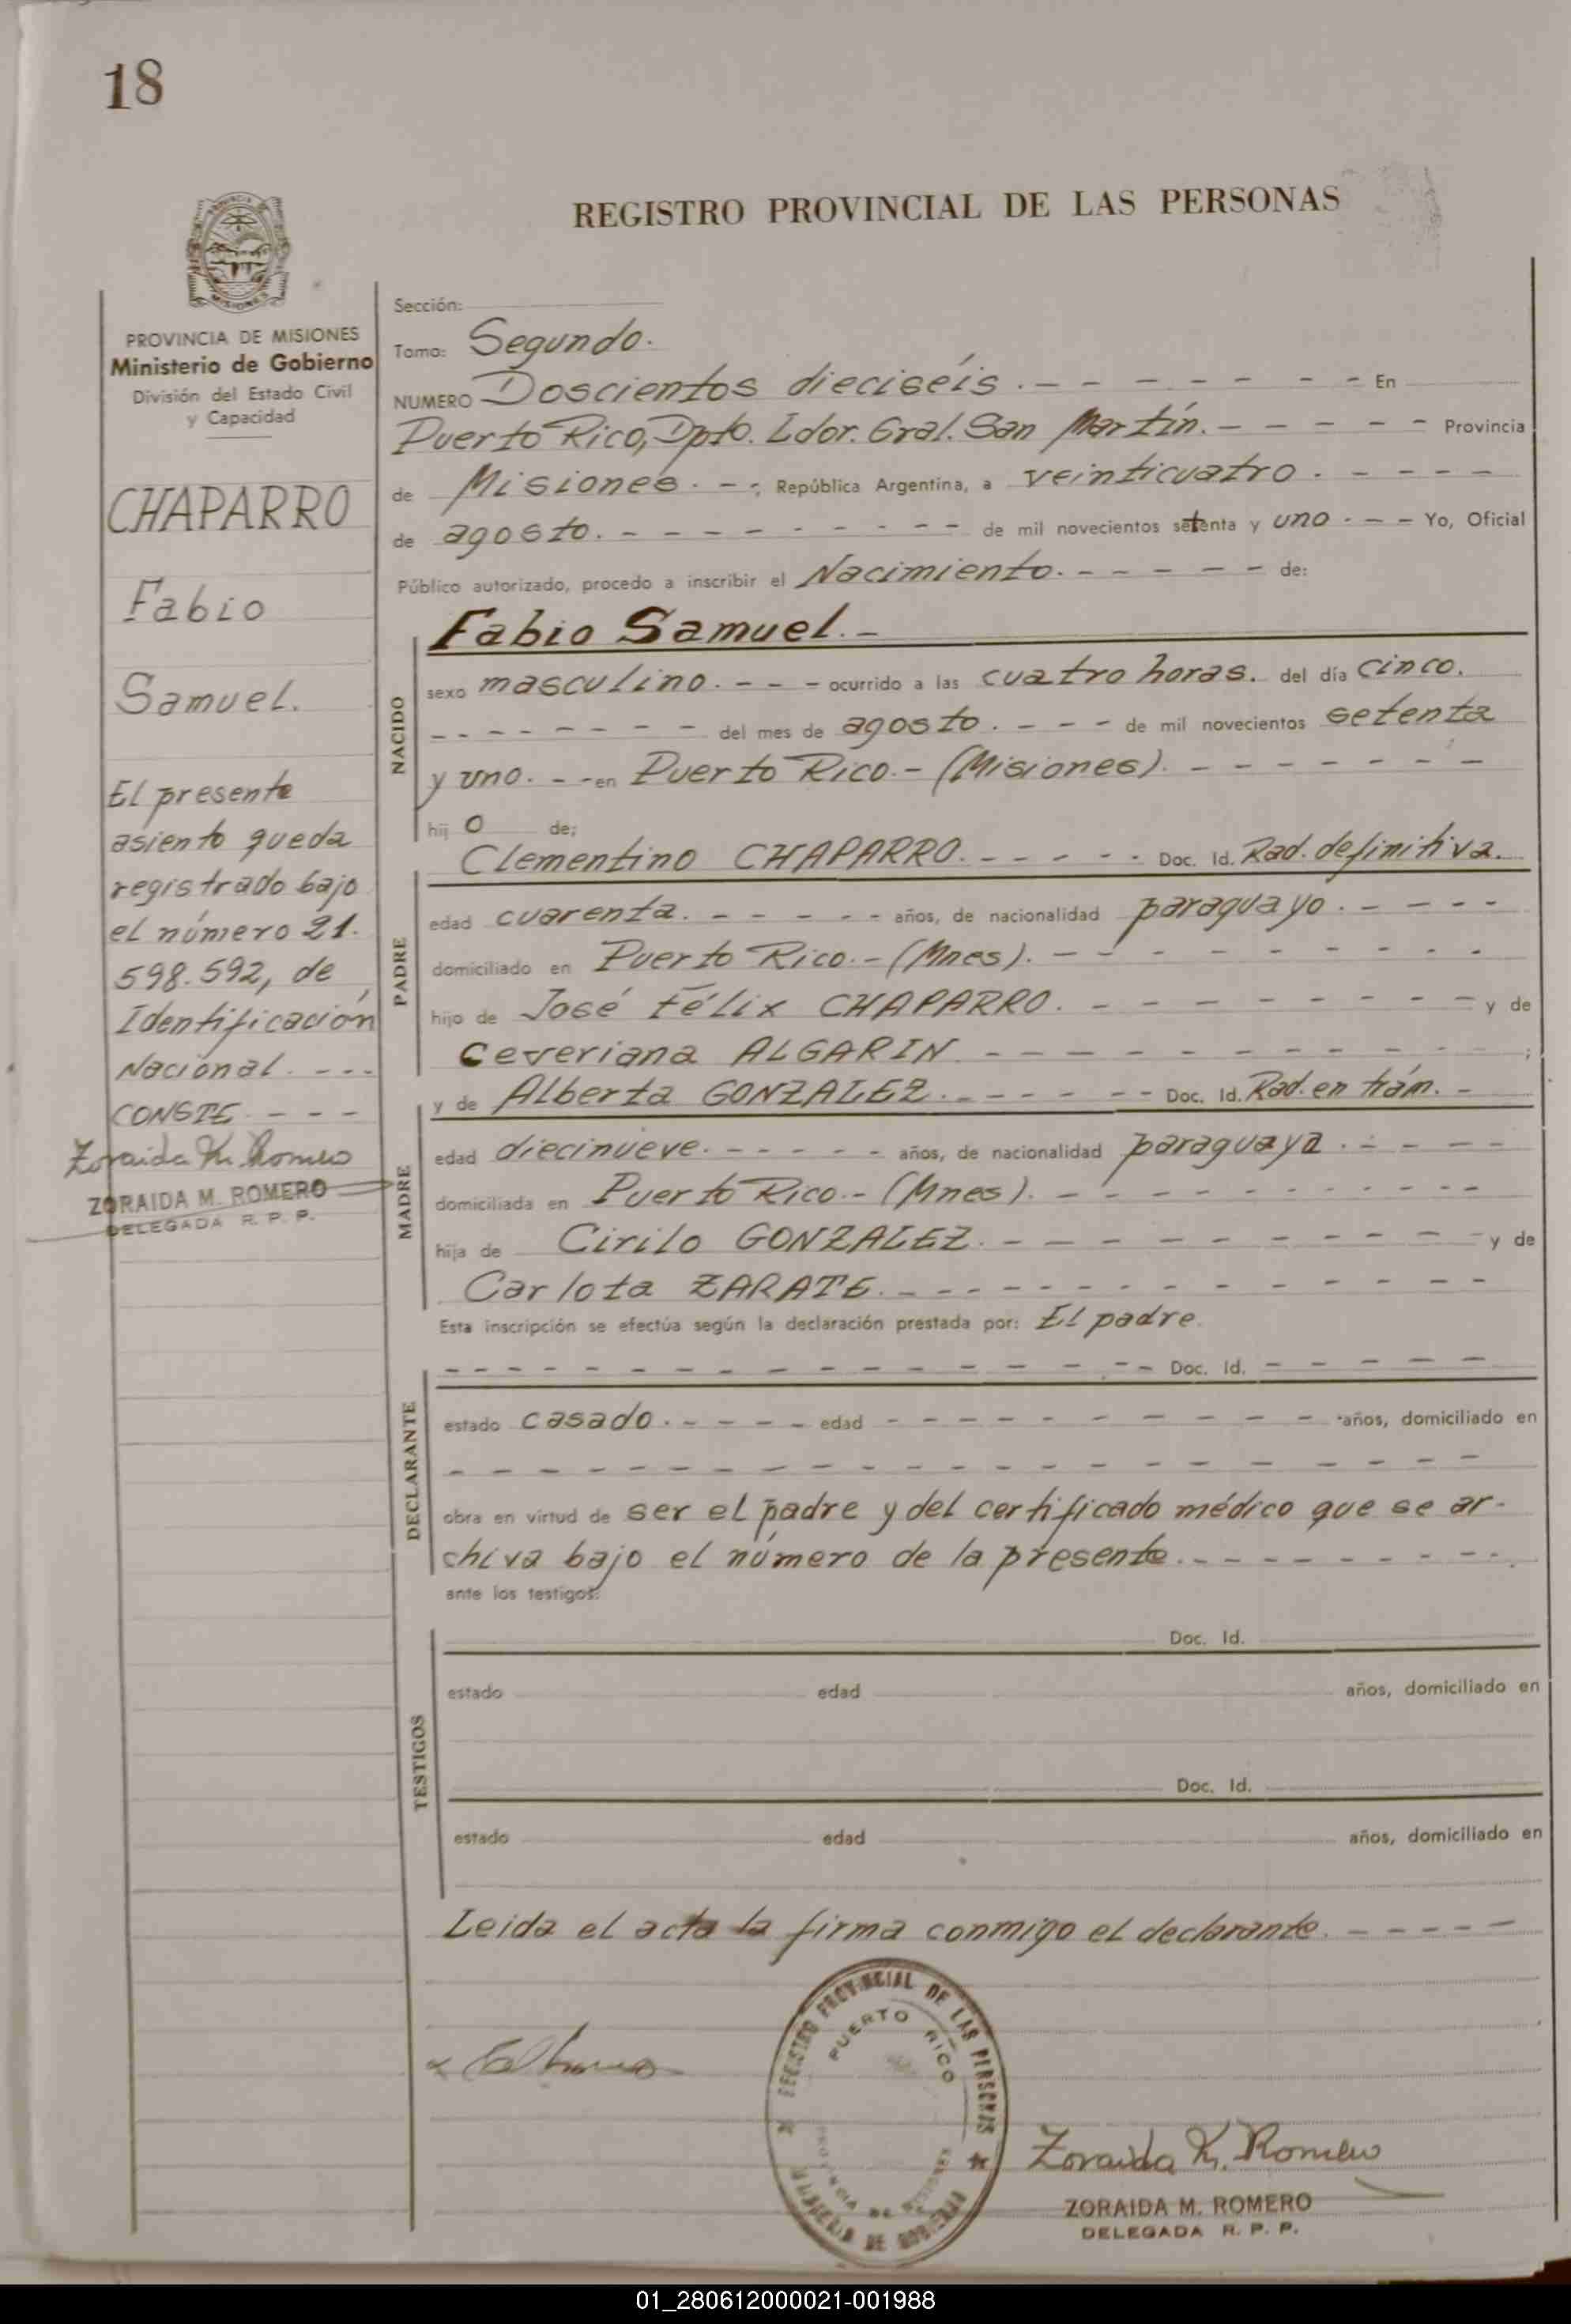 18
REGISTRO PROVINCIAL DE LAS PERSONAS
PROVINCIA DE MISIONES
Ministerio de Gobierno
División del Estado Civil
y Capacidad
CHAPARRO
Fabio
Samuel.
El presente
asiento queda
registrado bajo
el número 21.
598.592, de
Identificación
Nacional. - - -
CONSTE. - - -
Zoraida M. Romero
ZORAIDA M. ROMERO
DELEGADA R. P. P.
Sección:
Tomo: Segundo.
NUMERO Doscientos dieciséis. - - - - - - - En
Puerto Rico, Dpto. Ldor. Gral. San Martín. - - - - - Provincia
de Misiones. - -; República Argentina, a veinticuatro. - - - -
de agosto. - - - - - - - - - de mil novecientos setenta y uno - - - Yo, Oficial
Público autorizado, procedo a inscribir el Nacimiento. - - - - - de:
Fabio Samuel. -
NACIDO
sexo masculino. - - - ocurrido a las cuatro horas. del día cinco.
- - - - - - - - del mes de agosto. - - - de mil novecientos setenta
y uno. - - en Puerto Rico. - (Misiones). - - - - - - -
hij o de;
Clementino CHAPARRO. - - - - - Doc. Id. Rad. definitiva.
PADRE
edad cuarenta. - - - - - años, de nacionalidad paraguayo. - - - -
domiciliado en Puerto Rico. - (Mnes). - - - - - - - - -
hijo de José Félix CHAPARRO. - - - - - - - - - y de
Ceveriana ALGARIN - - - - - - - - - - - ;
y de Alberta GONZALEZ. - - - - - - Doc. Id. Rad. en trám. -
MADRE
edad diecinueve. - - - - - años, de nacionalidad paraguaya. - - - -
domiciliada en Puerto Rico. - (Mnes). - - - - - - - - - -
hija de Cirilo GONZALEZ. - - - - - - - - - y de
Carlota ZARATE. - - - - - - - - - - - - -
Esta inscripción se efectúa según la declaración prestada por: El padre.
- - - - - - - - - - - - - - - - Doc. Id. - - - - -
DECLARANTE
estado casado. - - - - edad - - - - - - - - - - años, domiciliado en
- - - - - - - - - - - - - - - - - - - - - -
obra en virtud de ser el padre y del certificado médico que se ar-
chiva bajo el número de la presente. - - - - - - - - -
ante los testigos:
TESTIGOS
Doc. Id.
estado edad años, domiciliado en
Doc. Id.
estado edad años, domiciliado en
Leida el acta la firma conmigo el declarante. - - - - -
REGISTRO PROVINCIAL DE LAS PERSONAS
PUERTO RICO
PROVINCIA DE MISIONES
DE GOBIERNO
Zoraida M. Romero
ZORAIDA M. ROMERO
DELEGADA R. P. P.
01_280612000021-001988